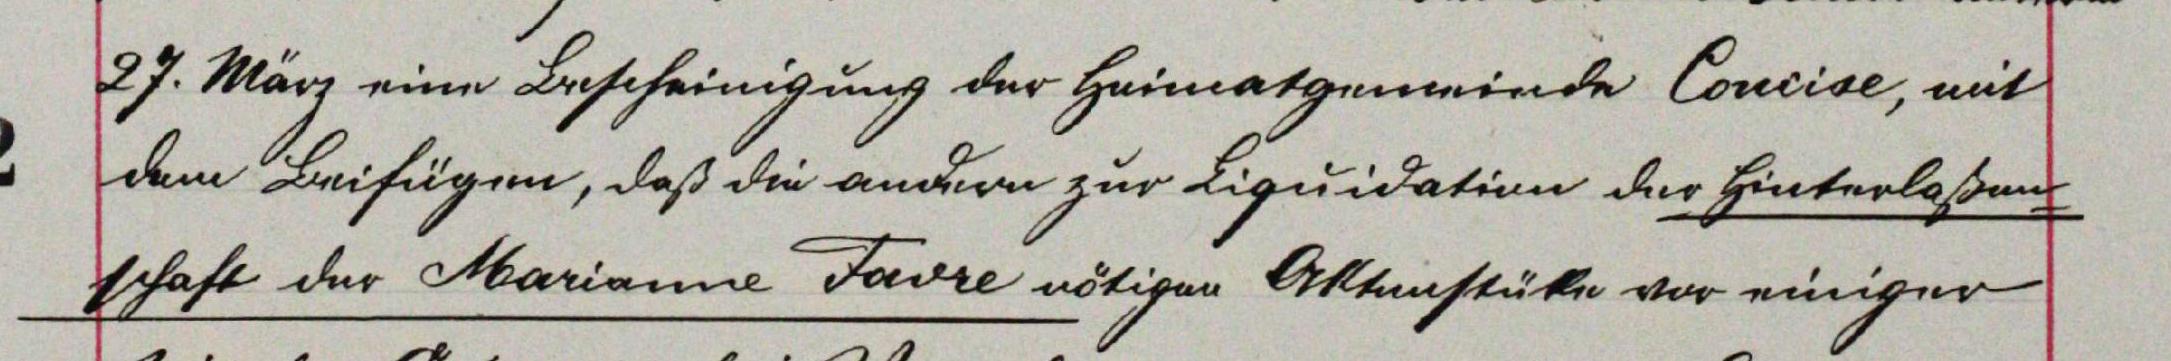 27. März eine Bescheinigung der Heimatgemeinde Concise, mit
dem Beifügen, daß die andern zur Liquidation der Hinterlaßen-
schaft der Marianne Favre nötigen Aktenstüke vor einiger